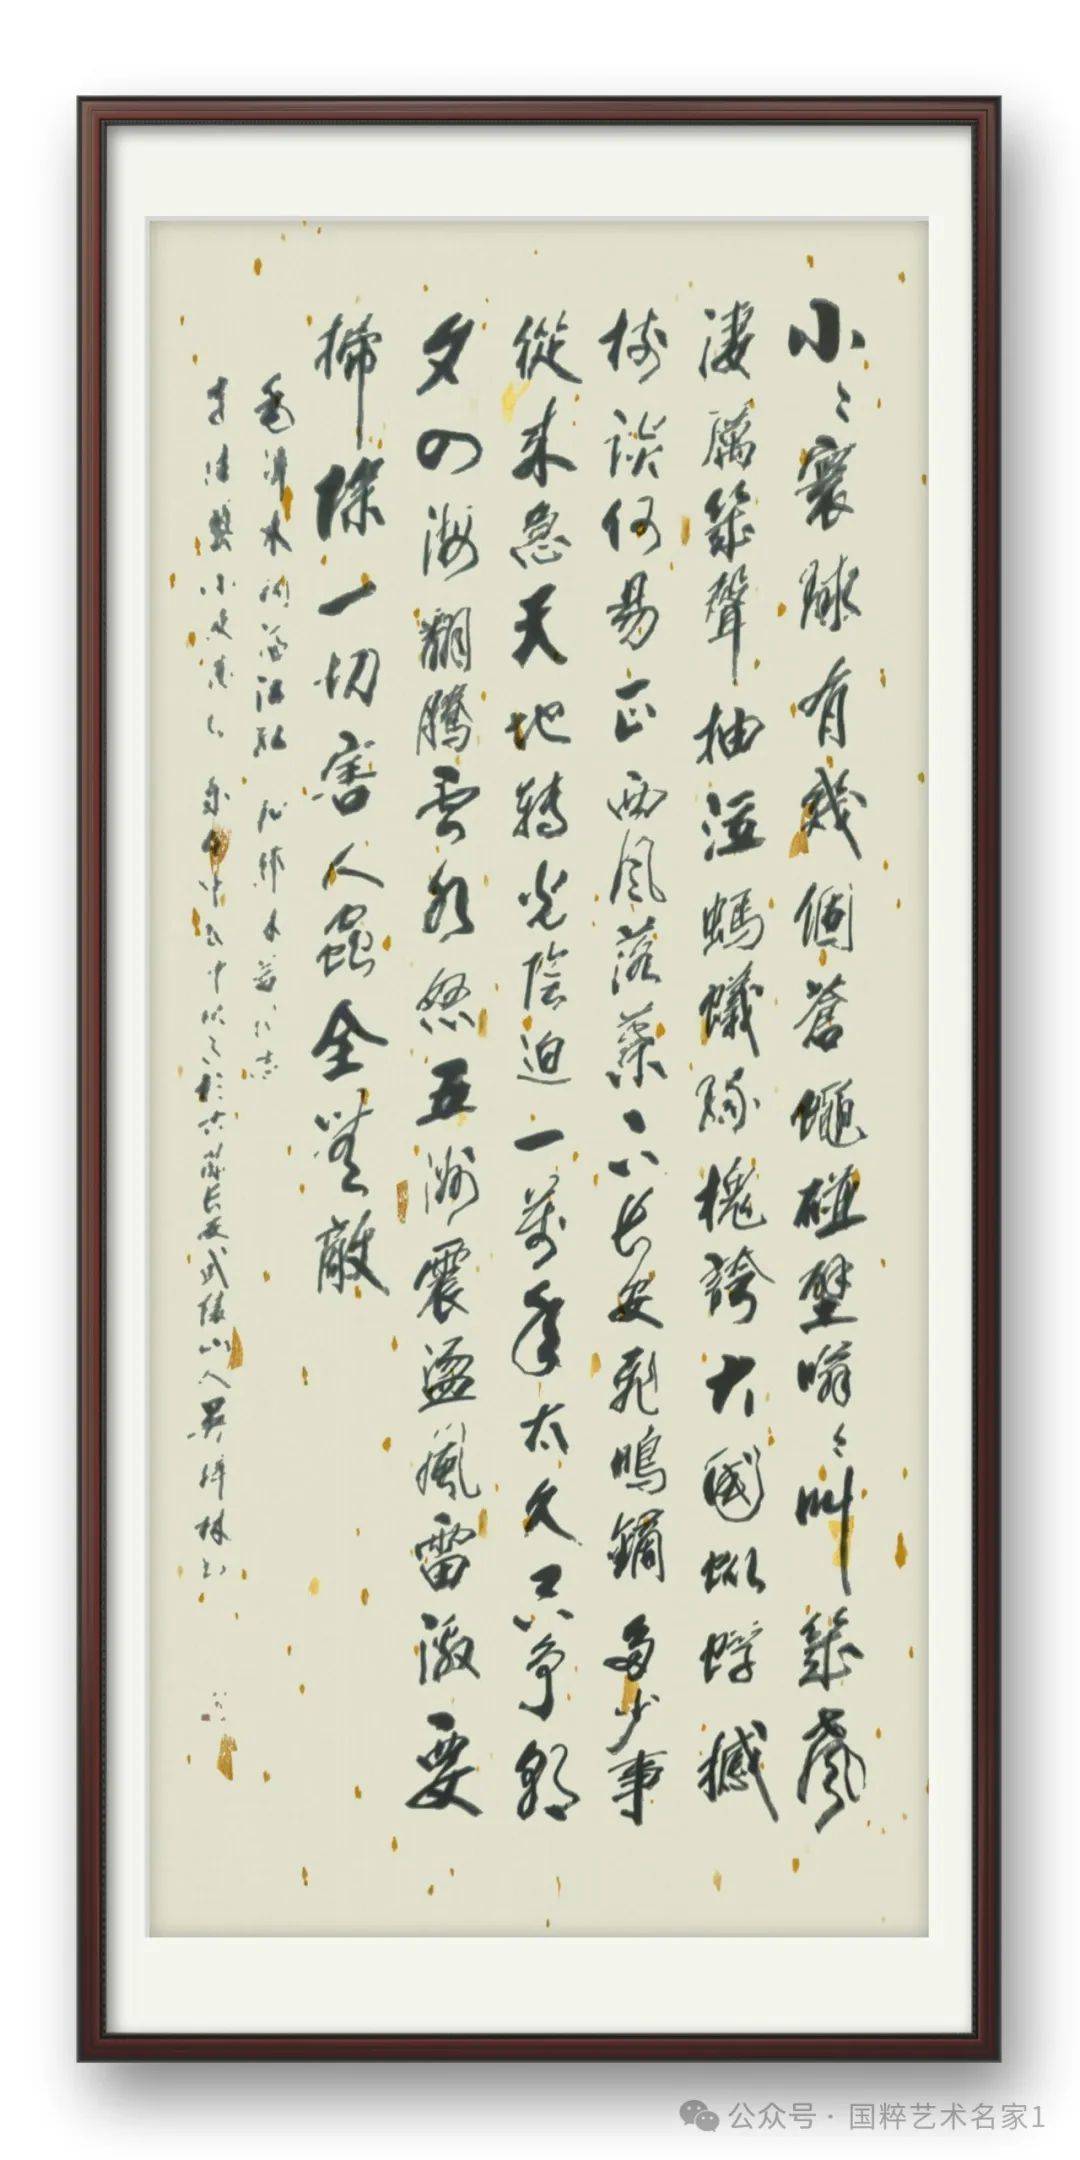 小々寰球有幾個蒼蠅碰壁嗡々叫幾聲
淒厲幾聲抽泣螞蟻緣槐誇大國蚍蜉撼
樹談何易正西風落葉下長安飛鳴鏑多少事
從來急天地轉光陰迫一萬年太久只爭朝
夕四海翻騰雲水怒五洲震盪風雷激要
掃除一切害人蟲全無敵
毛澤東詞滿江紅 和郭沫若同志
長安武陵山人吳梓林
公众号 · 国粹艺术名家1